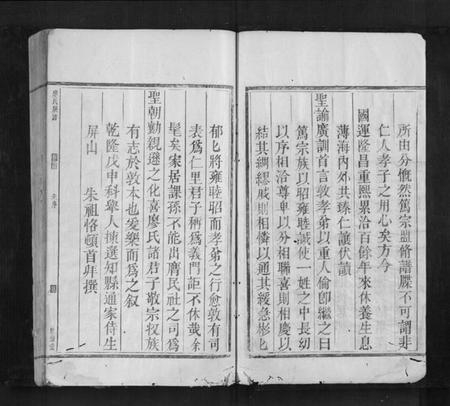 所由分慨然篤宗盟脩譜牒不可謂非
仁人孝子之用心矣方今
國運隆昌重熙累洽百餘年來休養生息
薄海内郊共臻仁讓伏讀
聖諭廣訓首言敦孝弟以重人倫卽繼之曰
篤宗族以昭雍睦誠使一姓之中長幼
以序相洽尊卑以分相聯喜則相慶以
結其綢繆戚則相憐以通其緩急彬匕
郁匕將雍睦昭而孝弟之行愈敦有司
表爲仁里君子稱爲義門詎不休哉余
髦矣家居課孫不能出膺民社之司爲
聖朝勷親遜之化喜廖氏諸君子敬宗收族
有志於敦本也爰樂而爲之叙
乾隆戊申科舉人揀選知縣通家侍生
屏山 朱祖恪頓首拜撰